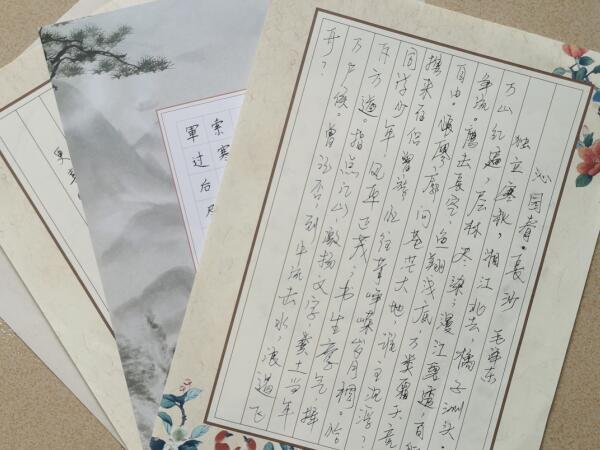 沁园春·长沙 毛泽东
独立寒秋，湘江北去，橘子洲头。
万山红遍，层林尽染；漫江碧透，百舸
争流。鹰击长空，鱼翔浅底，万类霜天竞
自由。怅寥廓，问苍茫大地，谁主沉浮？
携来百侣曾游 忆往昔峥嵘岁月稠。恰
同学少年 风华正茂；书生意气 挥
斥方遒。指点江山，激扬文字，粪土当年
万户侯。曾记否，到中流击水，浪遏飞
舟？
索寒
軍过后尽
更